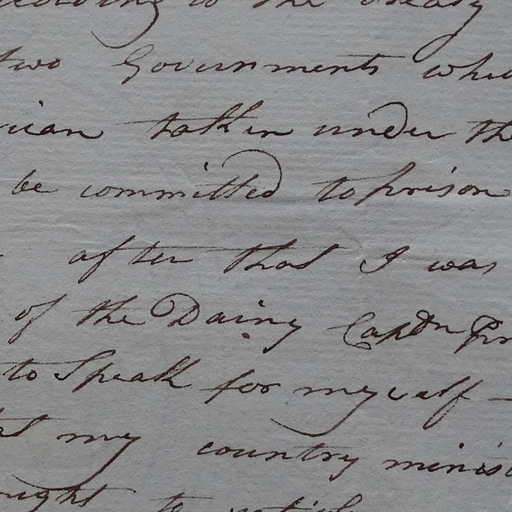 to the treaty
two Governments whi
ican takin under th
be committed to prison
after that I was
of the Dainy Captn
to Speak for my self
my country minis
to